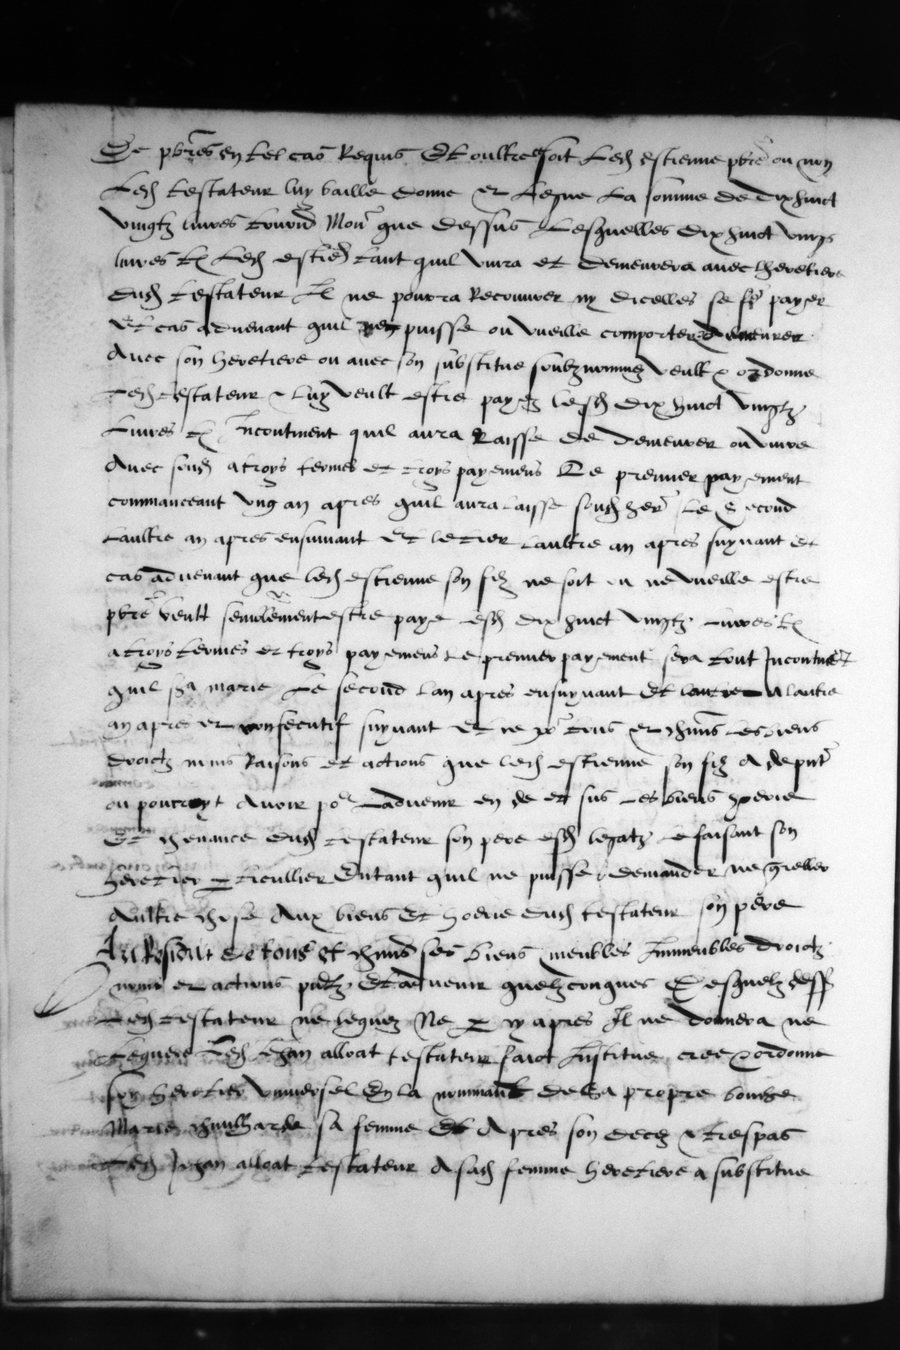 De pbres en tel cas Requis Et oultre soit Led estienne pbre ou non
Led testateur luy baille donne et Legue La somme de dixhuict
vingtz livres tournois Mon que dessus Lesquelles dix huict vingtz
livres tz Led estienne tant quil vivra et demeurera avec lheretiere
dud testateur Il ne pourra Recouvrer ny dicelles se fe payer
Et cas advenant quil ne puisse ou vueille comporter demeurer
Avec son heretiere ou avec son substitue soubznomme veult & ordonne
Led testateur & luy veult estre payez lesd dix huict vingtz
Livres tz Incontinent quil aura Laisse de demeurer ou vivre
Avec sond a troys termes et troys payemens Le premier payement
commanceant ung an apres quil aura laisse sond her Le Second
Laultre an apres ensuivant Et le tier Laultre an apres suyvant Et
cas advenant que led estienne son filz ne soit ou ne vueille estre
pbre veult semblement estre paye esd dix huict vingtz Livres tz
a troys termes et troys payemens Le premier payement sera tout Incontinent
quil sa marie Le second lan apres ensuyvant Et A laultre
an apres et consecutif suyvant Et ce pr tous et chuns Les biens
droictz noms Raisons et actions que led estienne son filz A de pnt
ou pourroyt Avoir por Ladvenir en de et sus Les biens hoerie
Et chevance dud testateur son pere esd legatz Le faisant son
heretier particullier Entant quil ne puisse demander ne quereller
Aultre chose Aux biens Et hoerie dud testateur son pere
Au Residu de tous Et chuns ses biens meubles Immeubles droictz
noms et actions pntz Et advenir quelzconques Desquelz dess
Led testateur ne legue Ne cy apres Il ne donnera ne
Leguera Led Jehan alloat testateur faict Institue cree & ordonne
son heretier universel En la nommant de sa propre bouche
Marie sa femme Et Apres son deces & trespas
Led Jehan alloat testateur A sad femme heretiere a substitue